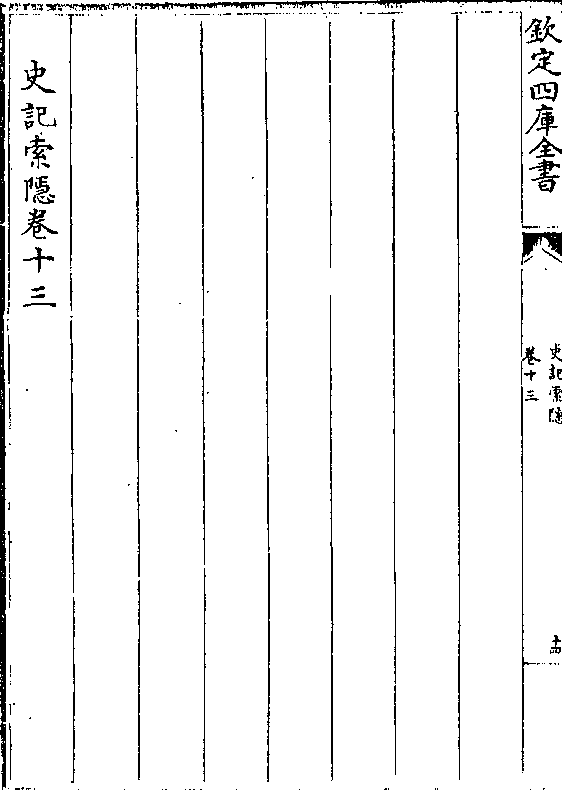 欽定四庫全書
史記索隱
卷十三
十四
史記索隱卷十三